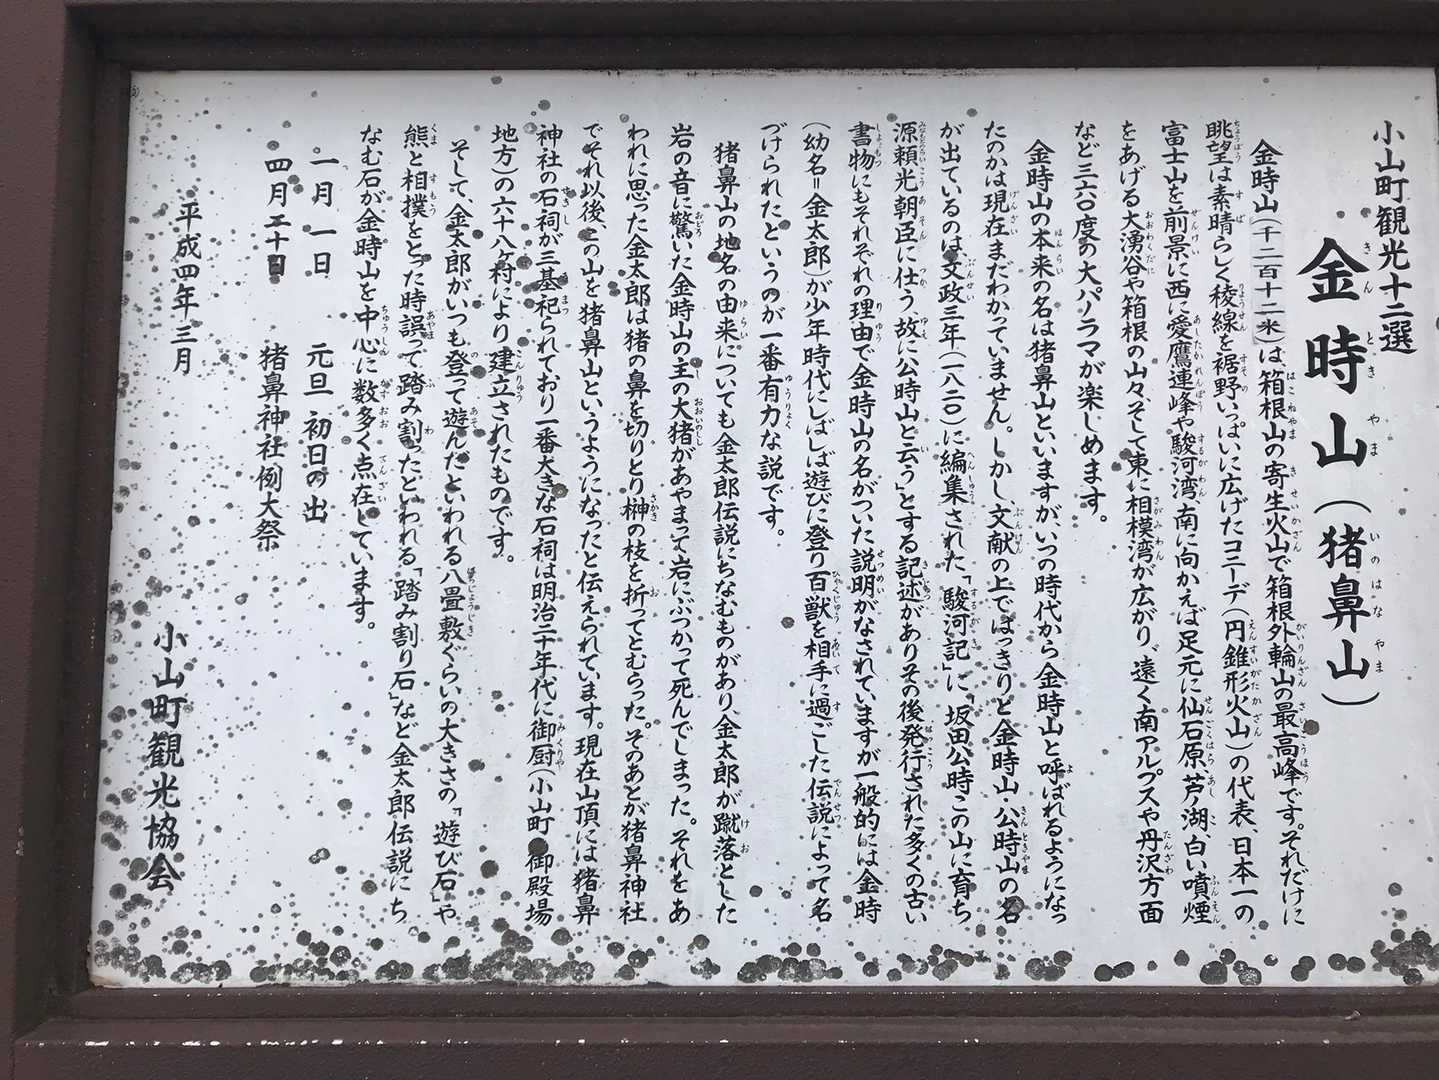 小山町観光十二選
金時山（猪鼻山）
金時山（千二百十二米）は箱根山の寄生火山で箱根外輪山の最高峰です。それだけに
眺望は素晴らしく稜線を裾野いっぱいに広げたコニーデ（円錐形火山）の代表、日本一の
富士山を前景に西に愛鷹連峰や駿河湾、南に向かえば足元に仙石原、芦ノ湖、白い噴煙
をあげる大湧谷や箱根の山々、そして東に相模湾が広がり、遠く南アルプスや丹沢方面
など三六〇度の大パノラマが楽しめます。
金時山の本来の名は猪鼻山といいますが、いつの時代から金時山と呼ばれるようになっ
たのかは現在まだわかっていません。しかし、文献の上ではっきりと金時山・公時山の名
が出ているのは文政三年（一八二〇）に編集された「駿河記」に「坂田公時この山に育ち
源頼光朝臣に仕う、故に公時山と云う」とする記述がありその後発行された多くの古い
書物にもそれぞれの理由で金時山の名がついた説明がなされていますが一般的には金時
（幼名＝金太郎）が少年時代にしばしば遊びに登り百獣を相手に過ごした伝説によって名
づけられたというのが一番有力な説です。
猪鼻山の地名の由来についても金太郎伝説にちなむものがあり、金太郎が蹴落とした
岩の音に驚いた金時山の主の大猪があやまって岩にぶつかって死んでしまった。それをあ
われに思った金太郎は猪の鼻を切りとり榊の枝を折ってとむらった。そのあとが猪鼻神社
でそれ以後、この山を猪鼻山というようになったと伝えられています。現在山頂には猪鼻
神社の石祠が三基祀られており一番大きな石祠は明治二十年代に御厨（小山町・御殿場
地方）の六十八ヶ村により建立されたものです。
そして、金太郎がいつも登って遊んだといわれる八畳敷ぐらいの大きさの「遊び石」や
熊と相撲をとった時誤って踏み割ったといわれる「踏み割り石」など金太郎伝説にち
なむ石が金時山を中心に数多く点在しています。
一月一日　元旦　初日の出
四月二十日　猪鼻神社例大祭
平成四年三月
小山町観光協会